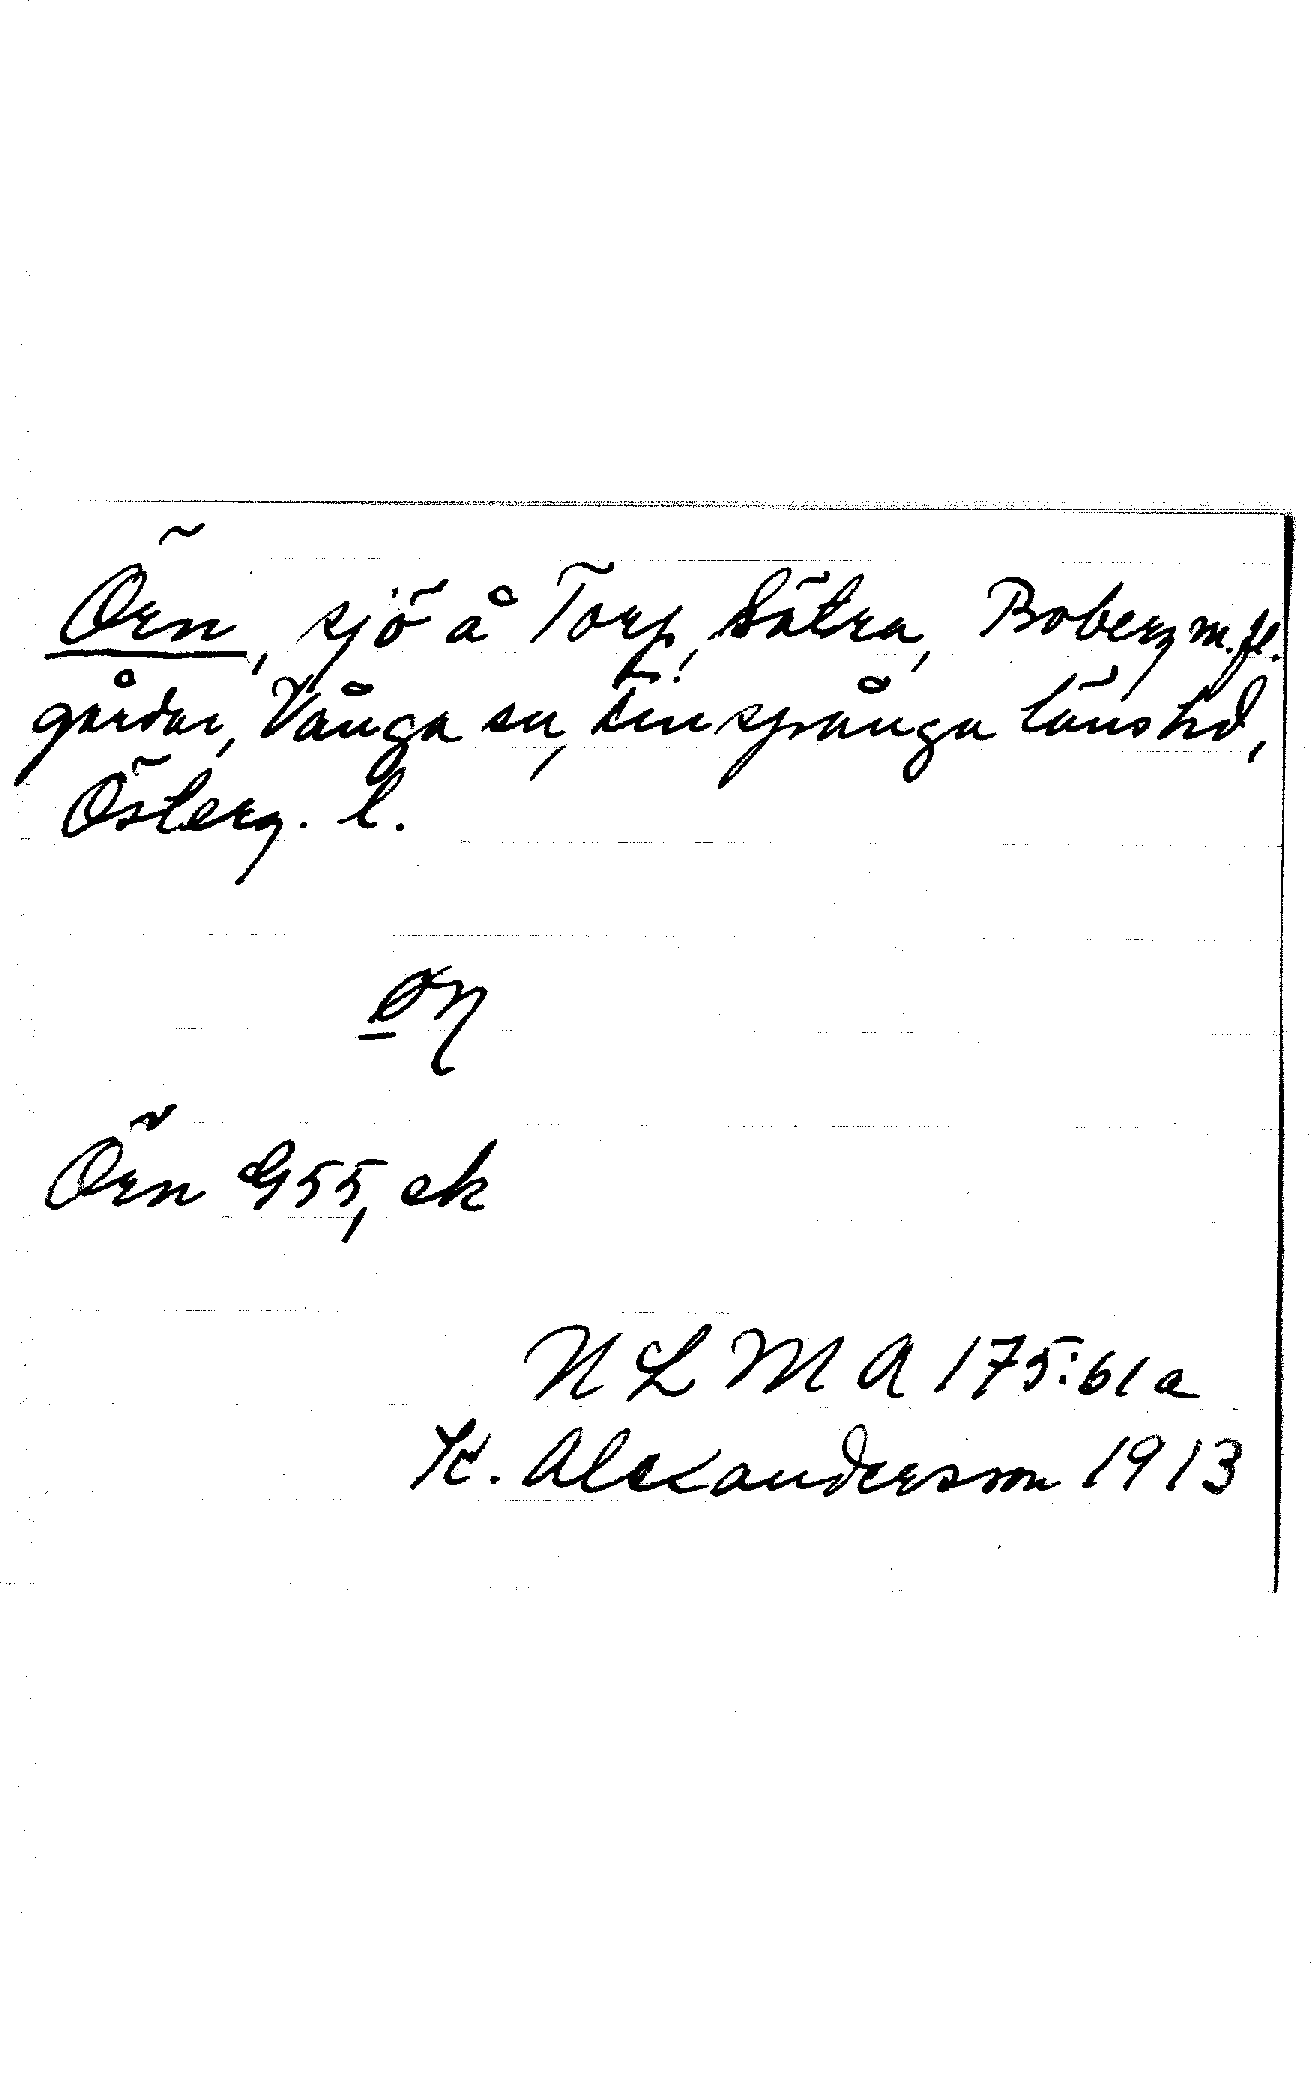 Örn, sjö å Torp, Sätra, Boberg m.fl.
gårdar, Vånga sn, Finspånga länshd,
Österg. l.
øɳ
Örn G55, ek
N L M A 175:61a
K. Alexanderson 1913